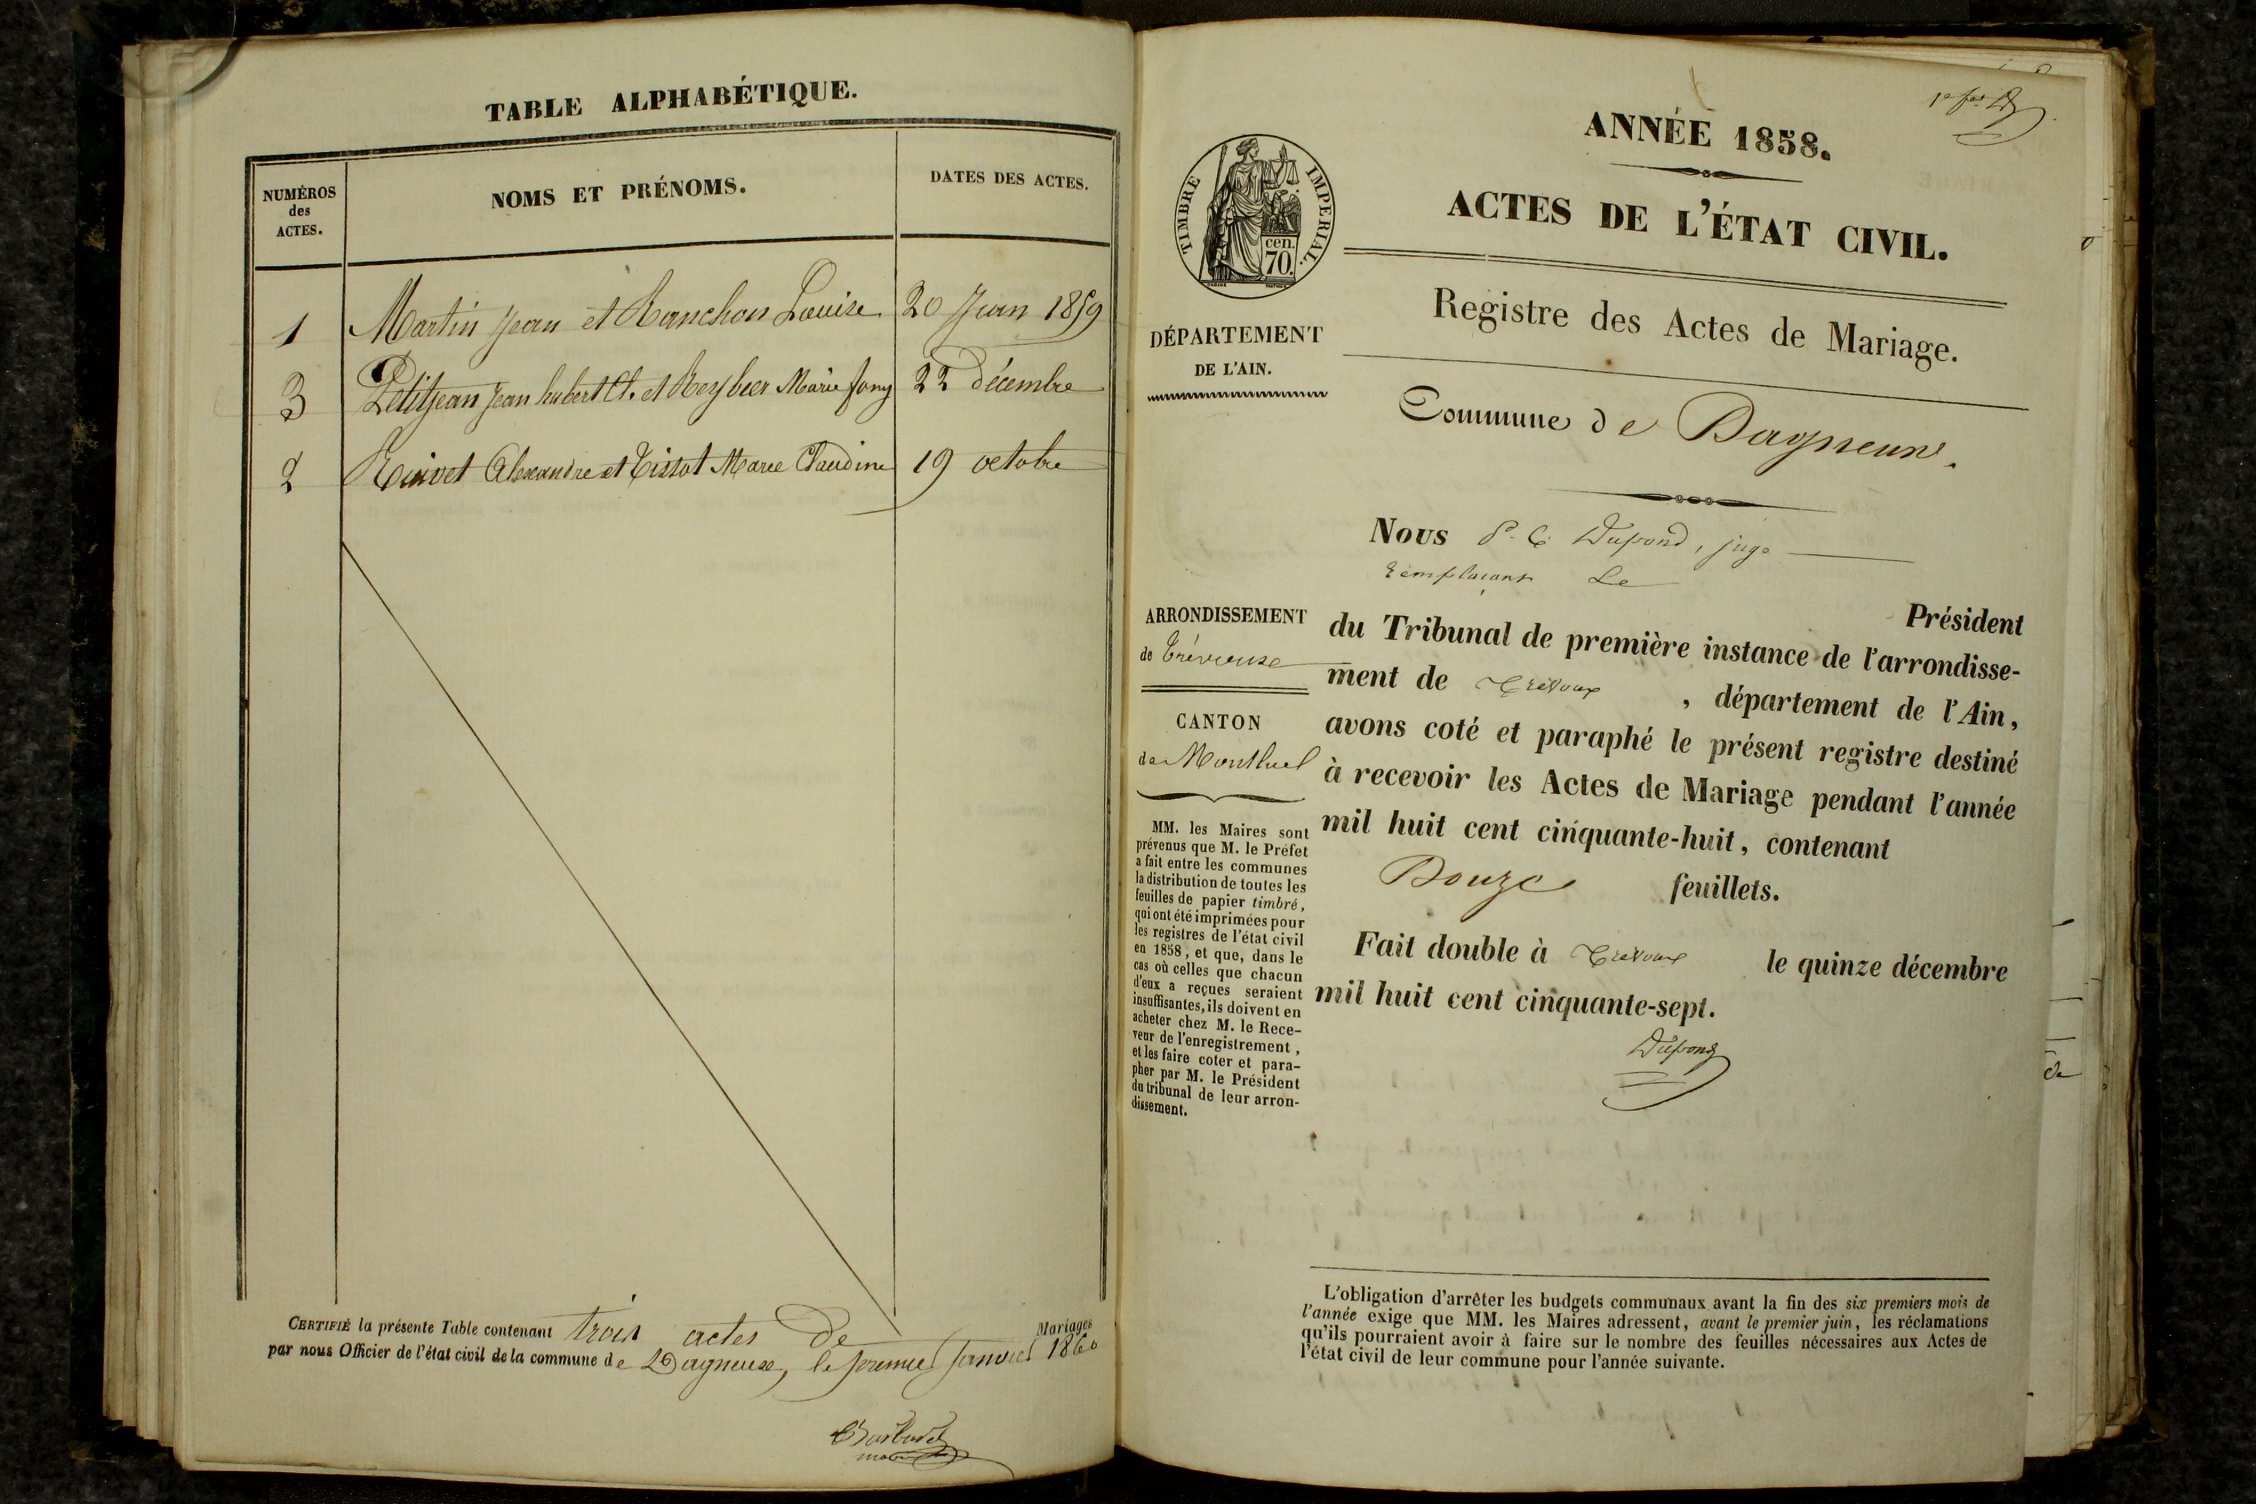 TABLE ALPHABÉTIQUE.
NUMÉROS
des
ACTES.
NOMS ET PRÉNOMS.
DATES DES ACTES.
1 Martin Jean et Ranchon Louise 20 Juin 1859
3 Petitjean Jean hubert et Reybier Marie fany 22 décembre
2 Rivet Alexandre et Tissot Marie Claudine 19 octobre
CERTIFIÉ la présente Table contenant trois actes de Mariages
par nous Officier de l'état civil de la commune de Dagneux, le premier Janvier 1860
ANNÉE 1858.
ACTES DE L'ÉTAT CIVIL.
TIMBRE IMPERIAL.
cen.
70.
Registre des Actes de Mariage.
DÉPARTEMENT
DE L'AIN.
Commune de Dagneux.
Nous P. C. Dupond, juge
remplaçant Le
Président
du Tribunal de première instance de l'arrondisse-
ment de Trévoux, département de l'Ain,
avons coté et paraphé le présent registre destiné
à recevoir les Actes de Mariage pendant l'année
mil huit cent cinquante-huit, contenant
Douze feuillets.
Fait double à Trévoux le quinze décembre
mil huit cent cinquante-sept.
Dupond
ARRONDISSEMENT
de Trévoux
CANTON
de Montluel
MM. les Maires sont
prévenus que M. le Préfet
a fait entre les communes
la distribution de toutes les
feuilles de papier timbré,
qui ont été imprimées pour
les registres de l'état civil
en 1858, et que, dans le
cas où celles que chacun
d'eux a reçues seraient
insuffisantes, ils doivent en
acheter chez M. le Rece-
veur de l'enregistrement,
et les faire coter et para-
pher par M. le Président
du tribunal de leur arron-
dissement.
L'obligation d'arrêter les budgets communaux avant la fin des six premiers mois de
l'année exige que MM. les Maires adressent, avant le premier juin, les réclamations
qu'ils pourraient avoir à faire sur le nombre des feuilles nécessaires aux Actes de
l'état civil de leur commune pour l'année suivante.